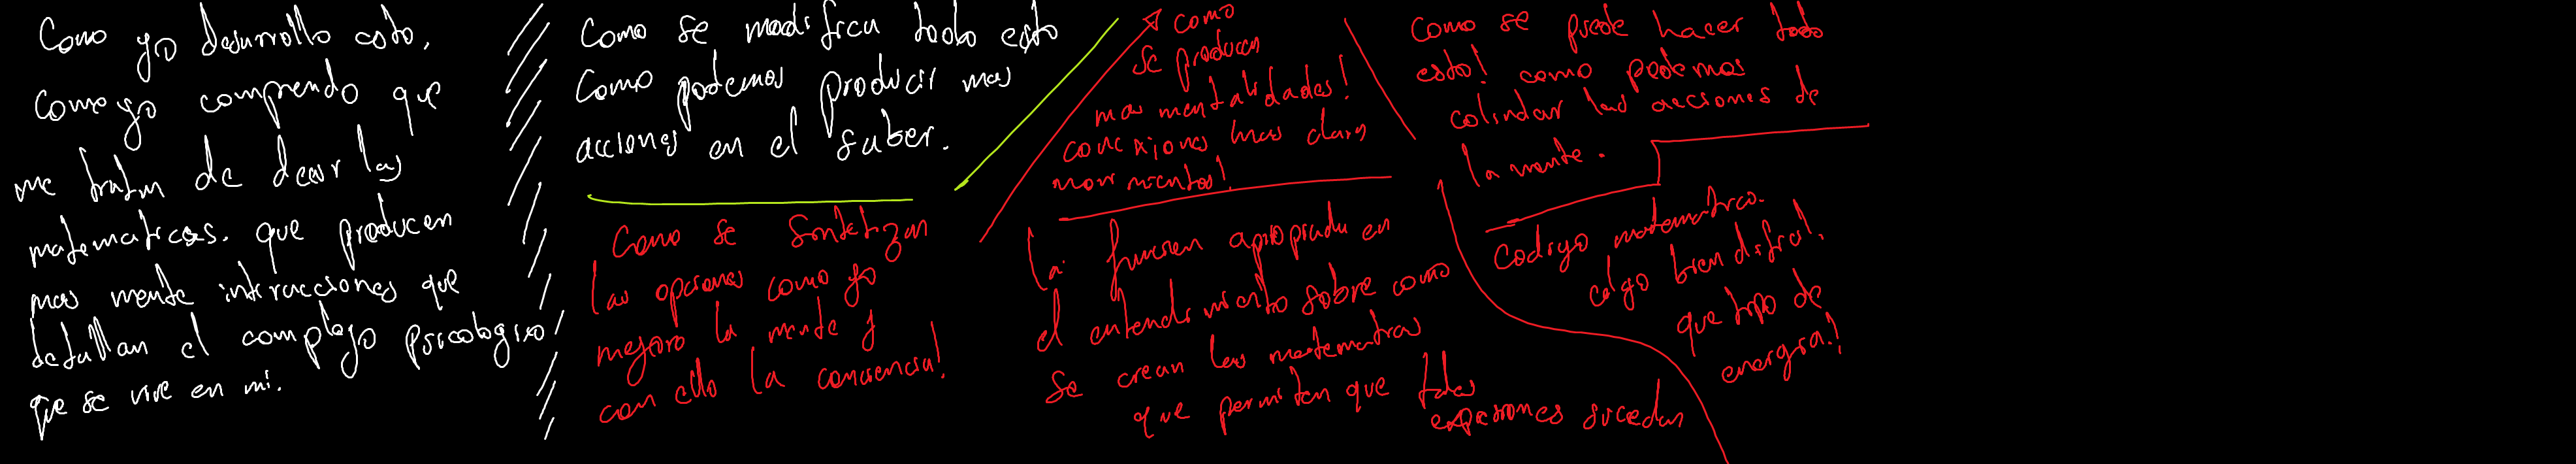 Como yo desarrollo esto.
Como yo comprendo que
me tratan de decir las
matematicas. que producen
mas mente interacciones que
detallan el complejo psicologico
que se vive en mi.
Como se modifica todo esto
Como podemos producir mas
acciones en el saber.
Como se sintetizan
las opciones como yo
mejoro la mente y
con ello la conciencia!
como
se producen
mas mentalidades!
conexiones mas claras
movimientos!
La funcion apropiada en
el entendimiento sobre como
se crean las matematicas
que permiten que tales
expresiones sucedan
Como se puede hacer todo
esto! como podemos
colindar las acciones de
la mente.
Codigo matematico.
algo bien dificil.
que tipo de
energia!